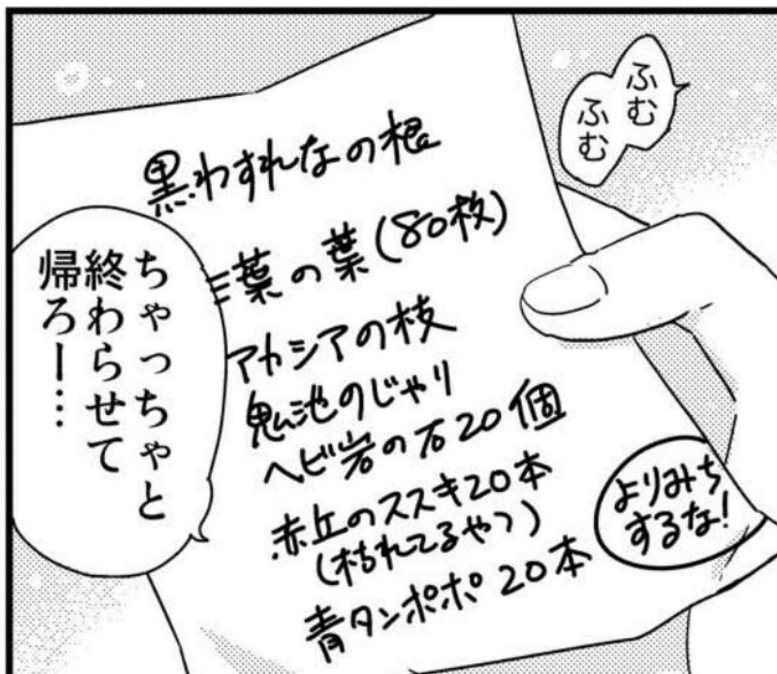 ふむ
ふむ
黒わすれなの根
三葉の葉(80枚)
アカシアの枝
鬼池のじゃり
ヘビ岩の石20個
赤丘のススキ20本
(枯れてるやつ)
青タンポポ 20本
よりみち
するな!
ちゃっちゃと
終わらせて
帰ろー…